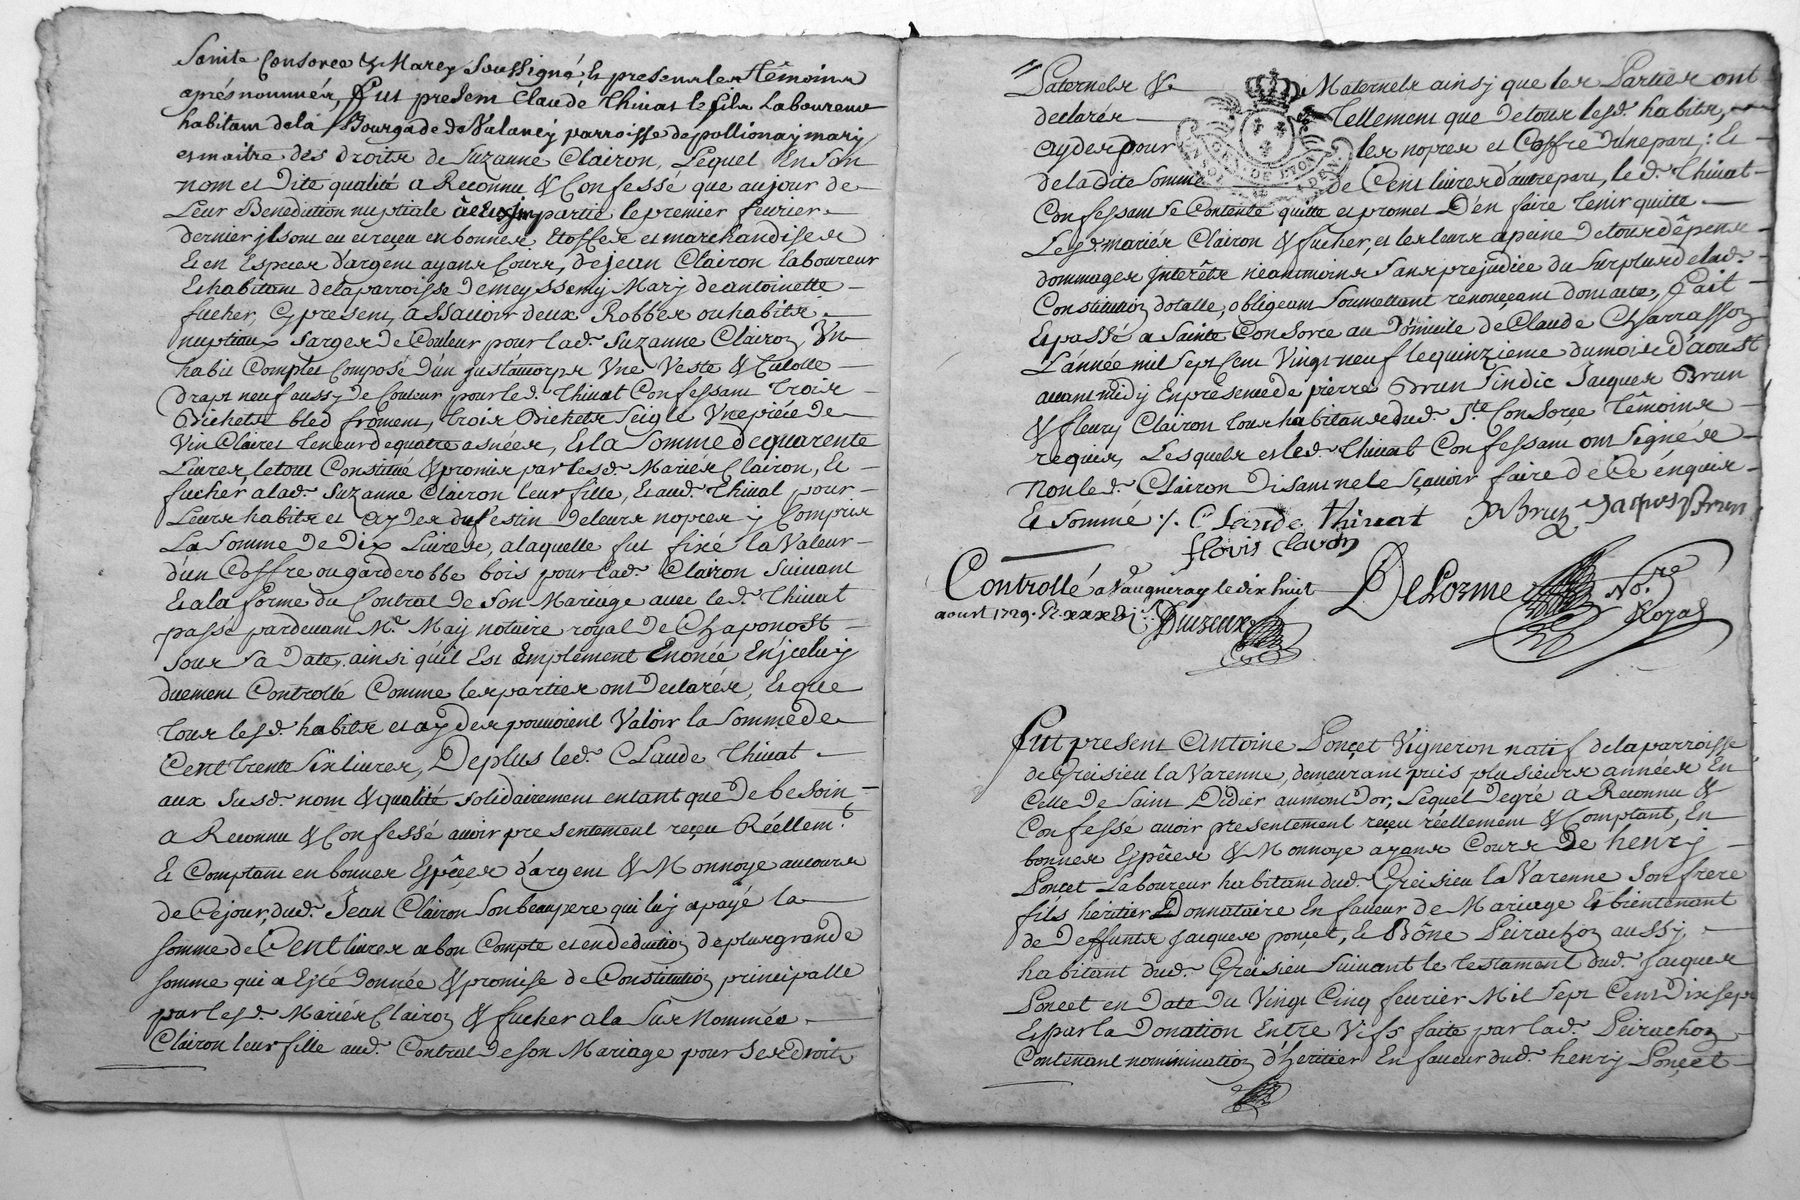 Sainte Consorce & Marcy Soussigné Et presens les têmoins
aprés nommés, Fut present Claude Thivat le fils Laboureur
habitant de la Bourgade de Valancy parroisse de pollionay mary
et maitre des droits de Suzanne Clairon, Lequel En son
nom et Dite qualité a Reconnu & Confessé que au jour de
Leur Benediction nuptiale partie le premier fevrier
dernier ils ont eu et reçeu en bonnes Etoffes et marchandises
Et en Espèces d'argent ayans Cours, de jean Clairon laboureur
Et habitant de la parroisse de meyssemy Mary de antoinette
fucher, Cy present, assavoir deux Robbes ou habits
nuptiaux sarges de Couleur pour lad. Suzanne Clairon, Un
habit Complet Composé d'un justaucorps Une Veste & Culotte
drapt neuf aussy de Couleur pour led. Thivat Confessant Trois
Bichets bled froment, trois Bichets Seigle Une pièce de
Vin Clairet teneur de quatre asnées, Et la Somme de quarente
Livres le tout Constitué & promis par lesd. Mariés Clairon, Et
fucher a lad. Suzanne Clairon leur fille, Et aud. Thivat pour
Leurs habits et aydes du festin de leurs nopces y Compris
La Somme de Dix Livres, a laquelle fut fixé la Valeur
d'un Coffre ou garderobbe bois pour lad. Clairon Suivant
Et a la forme du Contrat de Son Mariage avec led. Thivat
passé pardevant Me. May notaire royal de Chaponost
sous Sa Date, ainsi qu'il Est Emplement Enoncé En jceluy
duement Controllé Comme les parties ont Declarés, Et que
tous lesd. habits et aydes pouvoient Valoir la Somme de
Cent trente Six livres, De plus led. Claude Thivat
aux susd. nom & qualité solidairement en tant que de besoin
a Reconnu & Confessé avoir presentement reçeu Réellemt.
Et Comptant en bonnes Espêces d'argent & Monnoye au cours
de Ce jour, dud. Jean Clairon Son beaupere qui luy a payé la
somme de Cent livres a bon Compte et en deduction de plus grande
somme qui a Esté Donnée & promise de Constitution principalle
par lesd. Mariés Clairon & fucher a la Sus Nommée
Clairon leur fille aud. Contrat de son Mariage pour ses Droits
Paternels & Maternels ainsy que les Parties ont
declarés Tellement que de tous lesd. habits,
aydes pour les nopces et Coffre d'une part; Et
de la dite Somme de Cent livres d'autre part, led. Thivat
Confessant Se Contente quitte et promet D'en faire tenir quitte
Lesd. mariés Clairon & fucher, et les leurs a peine de tous dêpens
dommages Interêts neantmoins sans prejudice du Surplus de lad.
Constitution dotalle, obligeant Soumettant renonçeant dont acte, Fait
Et passé a Sainte Consorce au Domicile de Claude Charrasson
L'année mil Sept Cent Vingt neuf le quinzieme du mois d'aoust
avant midy En presence de pierre Brun Sindic Jacques Brun
& fleury Clairon tous habitans dud. Ste. Consorce Têmoins
requis, Lesquels et led. Thivat Confessant ont Signé de
Non led. Clairon Disant ne le Sçavoir faire de Ce énquis
Et Sommé ./. Claude Thivat P Brun Jaques Brun
floris Clairon
Controllé a Vaugneray le dix huit DeLorme Nore.
aoust 1729. Royal
Fut present Antoine Ponçet Vigneron natif de la parroisse
de Greisieu la Varenne, demeurant puis plusieurs années En
Celle de Saint Didier au mont Dor, Lequel Degré a Reconnu &
Confessé avoir presentement reçeu réellement & Comptant, En
bonnes Espêces & Monnoye ayans Cours De henry
Ponçet Laboureur habitant dud. Greisieu la Varenne Son frere
fils héritier Donnataire En faveur de Mariage Et bientenant
de Deffunts Jacques ponçet, Et Bône Peirachon aussy
habitant dud. Greisieu Suivant le testament dud. Jacques
Ponçet en Date du Vingt Cinq fevrier Mil Sept Cent Dix Sept
Et par la Donation Entre Vifs faite par lad. Peirachon
Contenant nomminination d'heritier En faveur dud. henry Ponçet